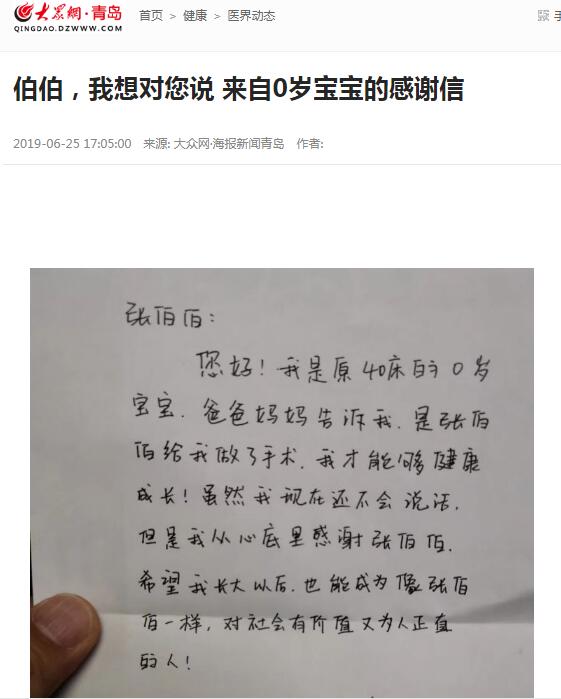 大众网·青岛
QINGDAO.DZWWW.COM
首页 > 健康 > 医界动态
手
伯伯，我想对您说 来自0岁宝宝的感谢信
2019-06-25 17:05:00 来源: 大众网·海报新闻青岛 作者:
张伯伯：
您好！我是原40床的0岁
宝宝．爸爸妈妈告诉我．是张伯
伯给我做了手术．我才能够健康
成长！虽然我现在还不会说话．
但是我从心底里感谢张伯伯．
希望我长大以后．也能成为像张伯
伯一样，对社会有价值又为人正直
的人！